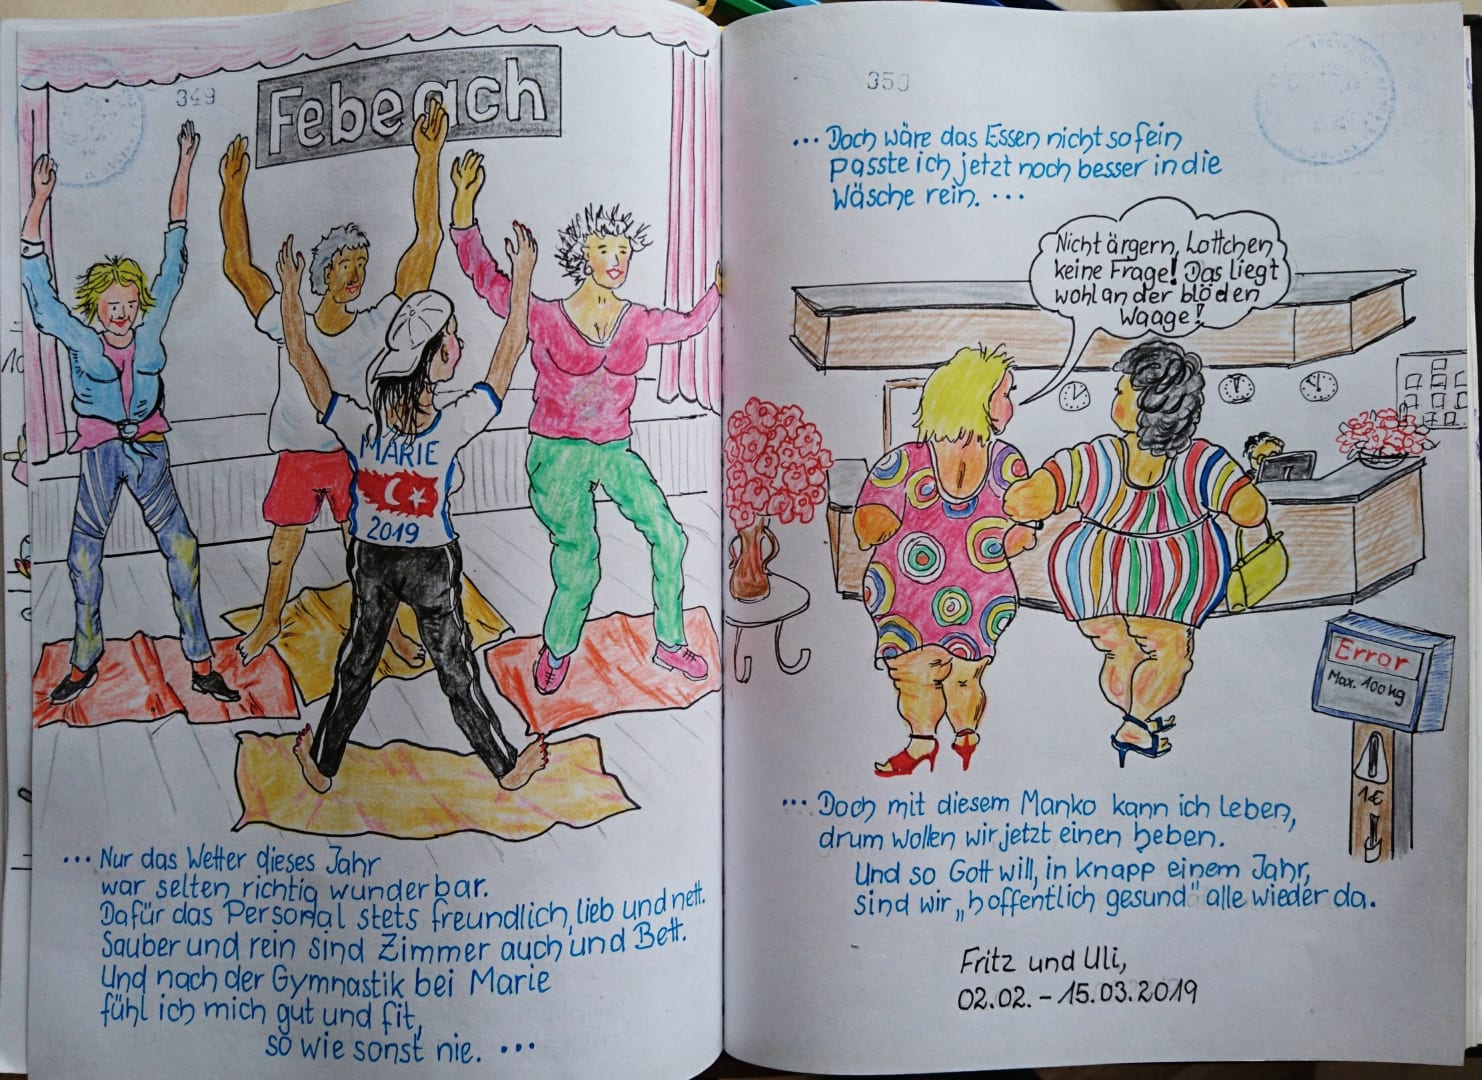 349
Febeach
MARIE
2019
... Nur das Wetter dieses Jahr
war selten richtig wunderbar.
Dafür das Personal stets freundlich, lieb und nett.
Sauber und rein sind Zimmer auch und Bett.
Und nach der Gymnastik bei Marie
fühl ich mich gut und fit,
so wie sonst nie. ...
350
... Doch wäre das Essen nicht so fein
passte ich jetzt noch besser in die
Wäsche rein. ...
Nicht ärgern, Lottchen,
keine Frage! Das liegt
wohl an der blöden
Waage!
Error
Max. 100 kg
1€
... Doch mit diesem Manko kann ich leben,
drum wollen wir jetzt einen heben.
Und so Gott will, in knapp einem Jahr,
sind wir „hoffentlich gesund" alle wieder da.
Fritz und Uli,
02.02. - 15.03.2019